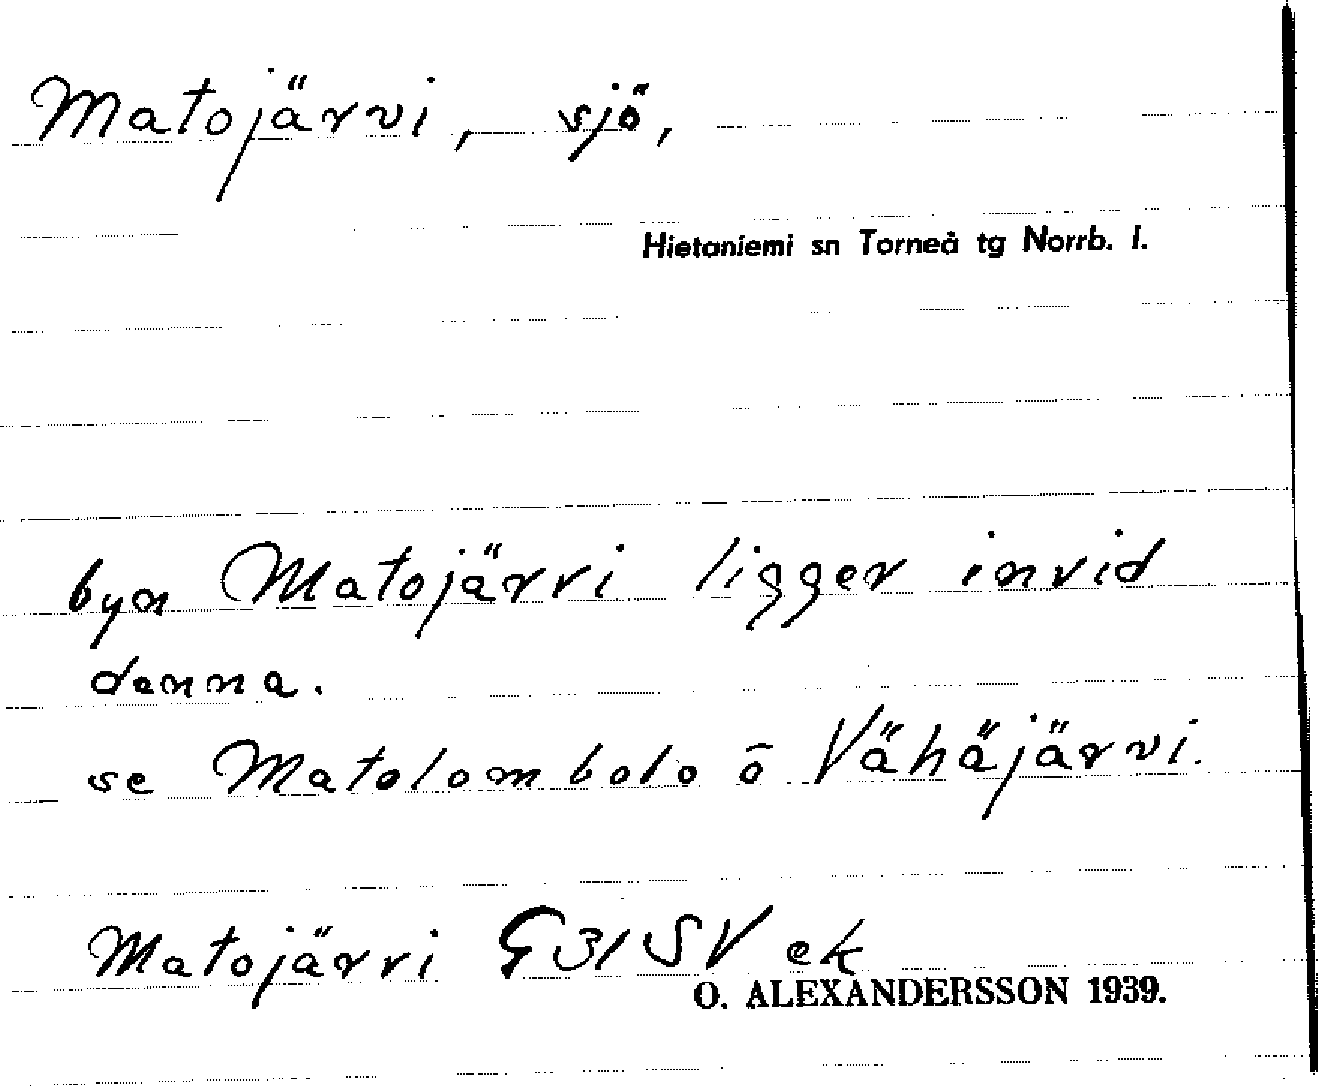 Matojärvi, sjö,
Hietaniemi sn Torneå tg Norrb. l.
byn Matojärvi ligger invid
denna.
se Matolombolo o Vähäjärvi.
Matojärvi G31SV ek
O. ALEXANDERSSON 1939.